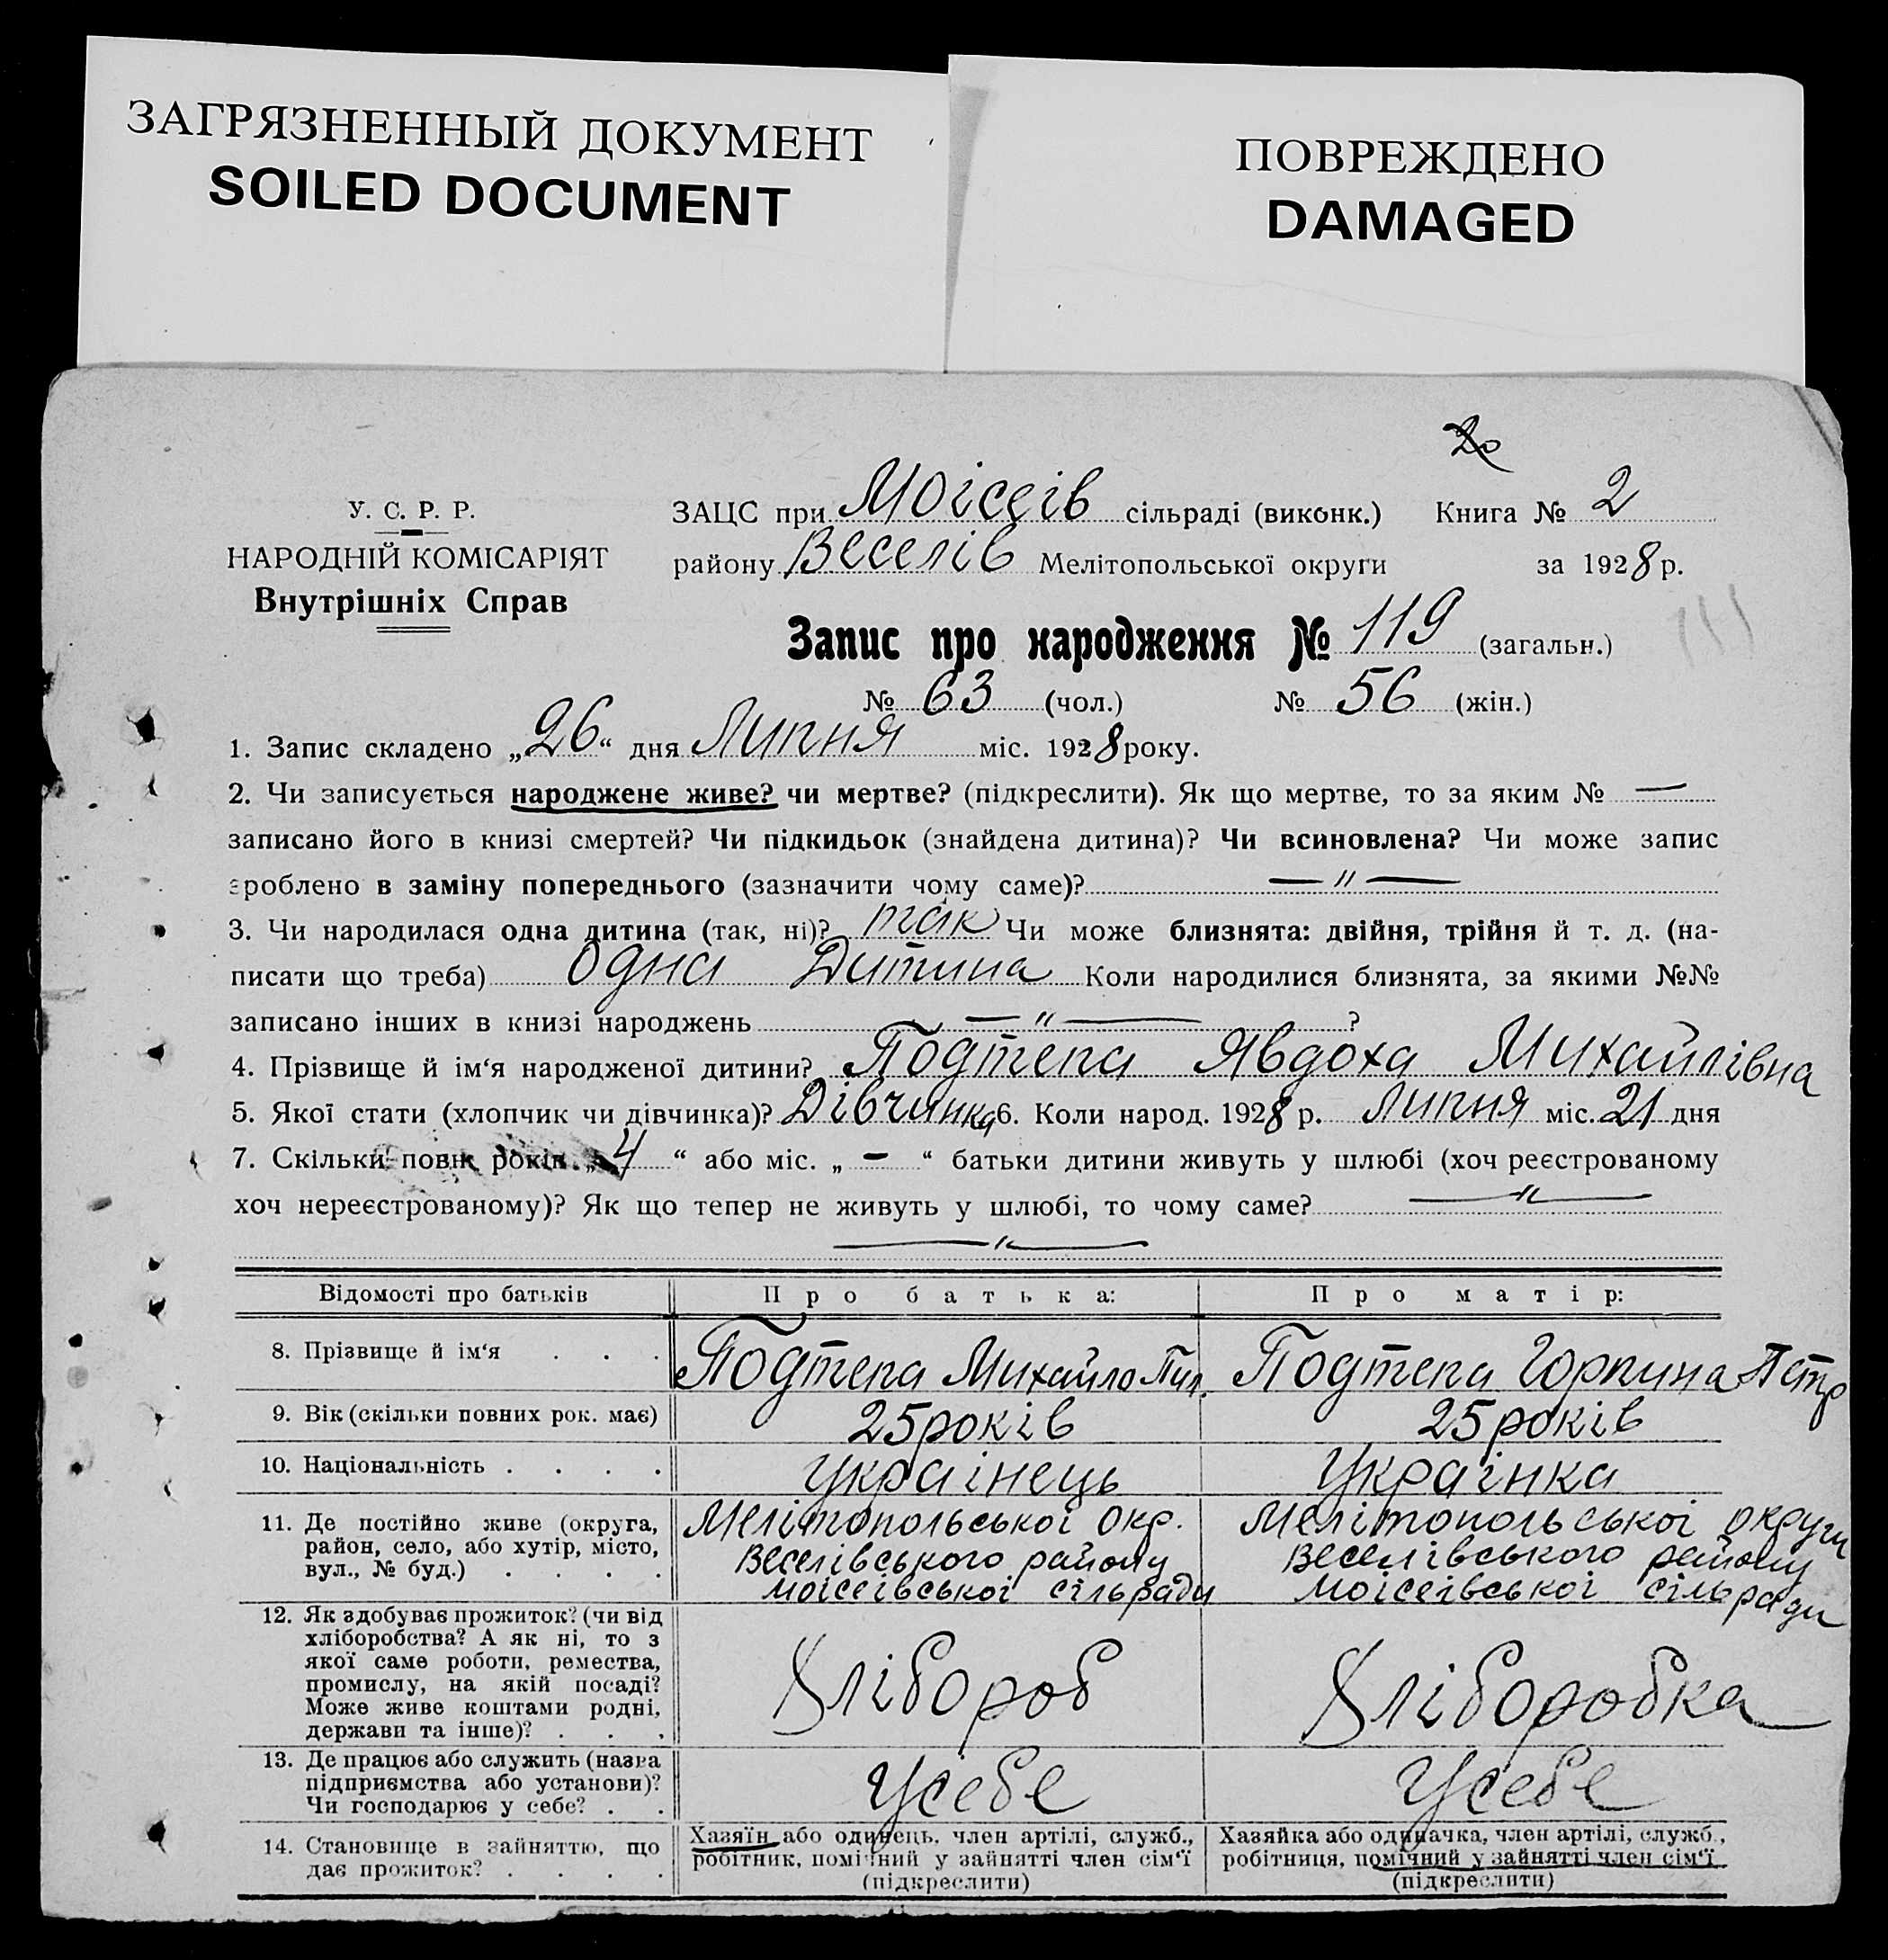 ЗАГРЯЗНЕННЫЙ ДОКУМЕНТ
SOILED DOCUMENT
ПОВРЕЖДЕНО
DAMAGED
У. С. Р. Р.
НАРОДНІЙ КОМІСАРІЯТ
Внутрішніх Справ
20
ЗАЦС при Моісеів сільраді (виконк.) Книга № 2
району Веселів Мелітопольської округи за 1928 р.
Запис про народження № 119 (загальн.)
№ 63 (чол.) № 56 (жін.)
1. Запис складено „26“ дня Липня міс. 1928 року.
2. Чи записується народжене живе? чи мертве? (підкреслити). Як що мертве, то за яким № —
записано його в книзі смертей? Чи підкидьок (знайдена дитина)? Чи всиновлена? Чи може запис
зроблено в заміну попереднього (зазначити чому саме)? — „ —
3. Чи народилася одна дитина (так, ні)? так Чи може близнята: двійня, трійня й т. д. (на-
писати що треба) Одна Дитина Коли народилися близнята, за якими №№
записано інших в книзі народжень — „ — ?
4. Прізвище й ім‘я народженої дитини? Подтепа Явдоха Михайлівна
5. Якої стати (хлопчик чи дівчинка)? Дівчинка 6. Коли народ. 1928 р. Липня міс. 21 дня
7. Скільки повн. років „4“ або міс. „—“ батьки дитини живуть у шлюбі (хоч реєстрованому
хоч нереєстрованому)? Як що тепер не живуть у шлюбі, то чому саме? — „ —
— „ —
Відомості про батьків Про батька: Про матір:
8. Прізвище й ім‘я . . . Подтепа Михайло Пил. Подтепа Горпина Петр
9. Вік (скільки повних рок. має) 25 років 25 років
10. Національність . . . . Украінець Украінка
11. Де постійно живе (округа, Мелітопольськоі Окр. Мелітопольськоі округи
район, село, або хутір, місто, Веселівського району Веселівського району
вул., № буд.) . . . . Моісеівськоі сільради Моісеівськоі сільради
12. Як здобуває прожиток? (чи від
хліборобства? А як ні, то з
якої саме роботи, ремества,
промислу, на якій посаді? Хлібороб Хліборобка
Може живе коштами родні,
держави та інше)? . . .
13. Де працює або служить (назва
підприємства або установи)? Усебе Усебе
Чи господарює у себе? . .
14. Становище в зайняттю, що Хазяїн або одинець, член артілі, служб., Хазяйка або одиначка, член артілі, служб.,
дає прожиток? . . . . робітник, помічний у зайнятті член сім‘ї робітниця, помічний у зайнятті член сім‘ї
(підкреслити) (підкреслити)